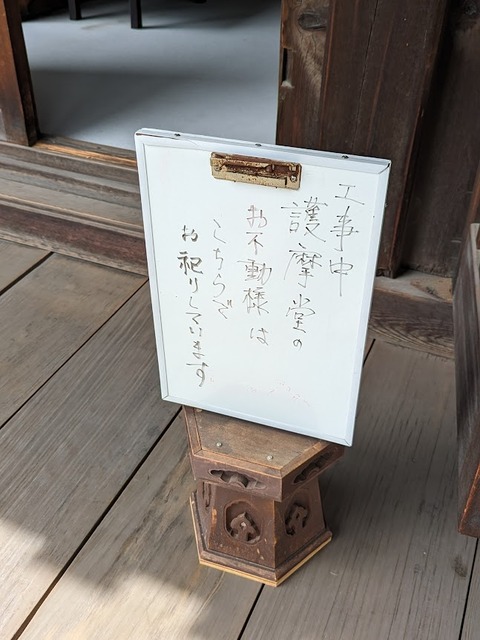 工事中
護摩堂の
お不動様は
こちらで
お祀りしています